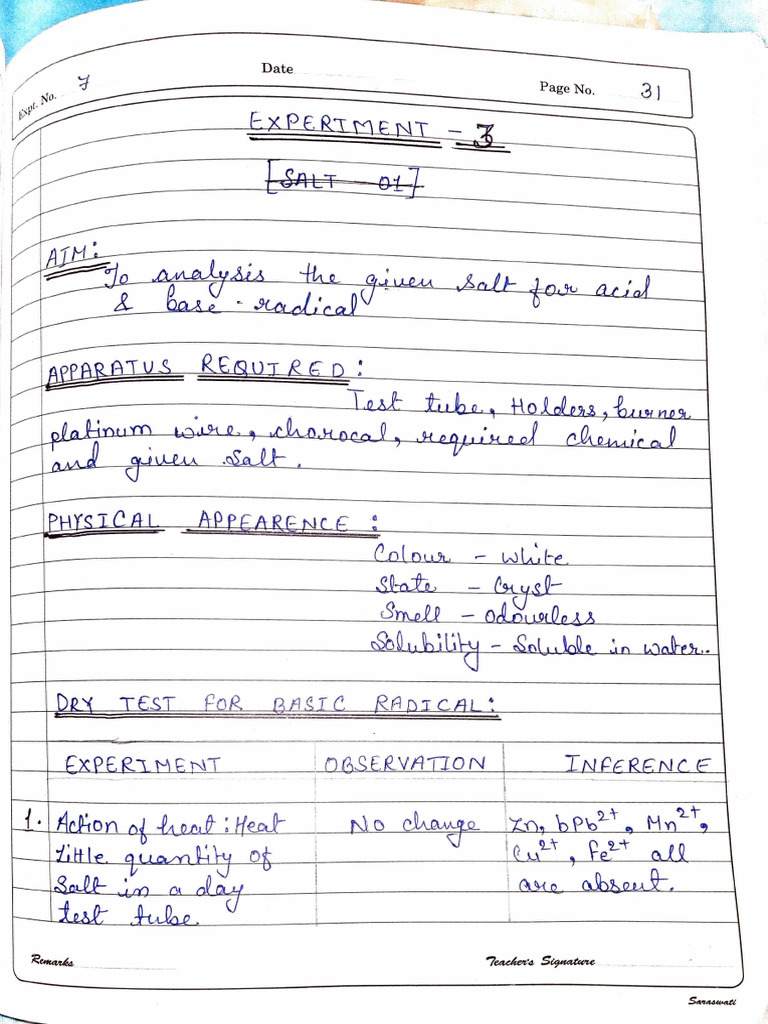 Expt. No. 7 Date Page No. 31
EXPERIMENT - 7
[SALT 01]
AIM:
To analysis the given salt for acid
& base radical
APPARATUS REQUIRED:
Test tube, Holders, burner
platinum wire, charocal, required chemical
and given salt.
PHYSICAL APPEARENCE:
Colour - white
State - Cryst
Smell - odourless
Solubility - Soluble in water.
DRY TEST FOR BASIC RADICAL:
EXPERIMENT OBSERVATION INFERENCE
1. Action of heat: Heat No change Zn, bPb2+, Mn2+,
little quantity of Cu2+, Fe2+ all
Salt in a day are absent.
test tube
Remarks Teacher's Signature
Saraswati